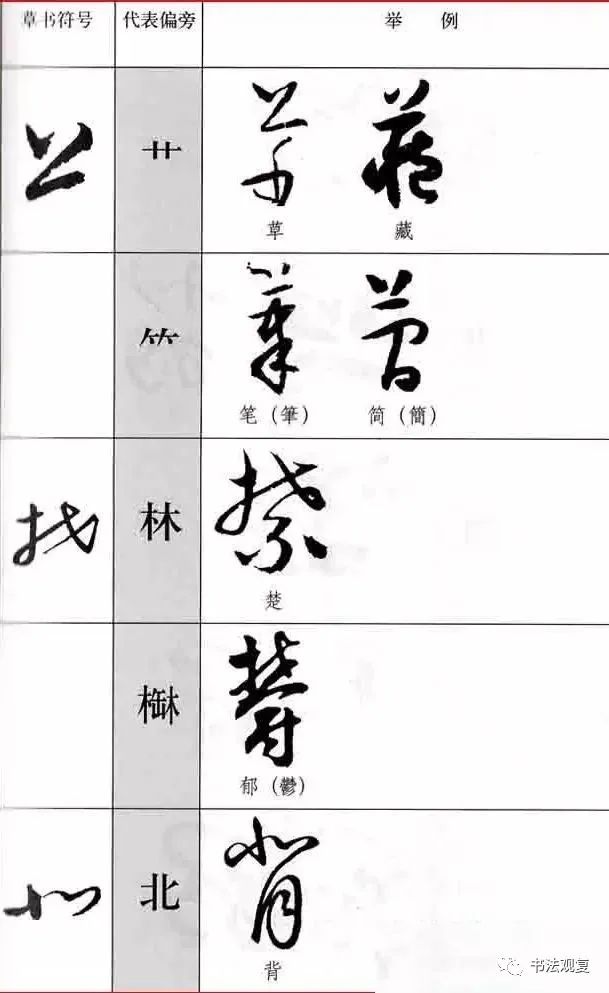 草书符号 代表偏旁 举 例
艹
草 藏
⺮
笔（筆） 简（簡）
林
楚
郁（鬱）
北
背
书法观复